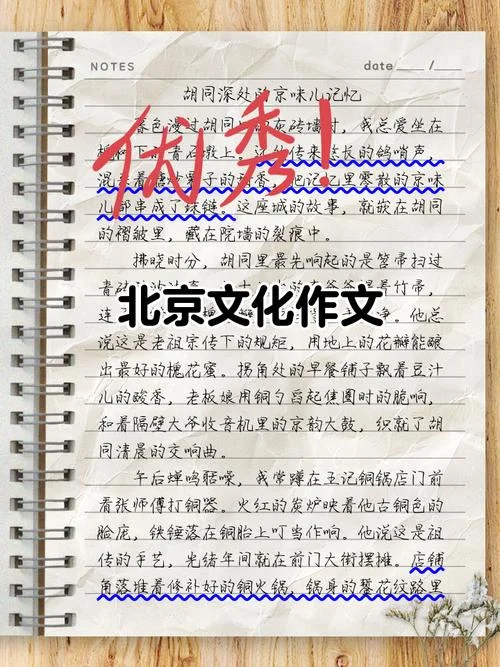 NOTES
date / 
胡同深处的京味儿记忆
优秀!
暮色漫过胡同 灰砖墙时，我总爱坐在
下 青石墩上。 传来 长的鸽哨声，
混 着糖炒栗子的 香，把记忆里零散的京味
儿都串成了珠链。这座城的故事，就嵌在胡同
的褶皱里，藏在院墙的裂痕中。
拂晓时分，胡同里最先响起的是笤帚扫过
青 竹帚，
北京文化作文
连 净。他总
说这是老祖宗传下的规矩，用地上的花瓣能酿
出最好的槐花蜜。拐角处的早餐铺子飘着豆汁
儿的酸香，老板娘用铜勺舀起焦圈时的脆响，
和着隔壁大爷收音机里的京韵大鼓，织就了胡
同清晨的交响曲。
午后蝉鸣聒噪，我常蹲在王记铜锅店门前
看张师傅打铜器。火红的炭炉映着他古铜色的
脸庞，铁锤落在铜胎上叮当作响。他说这是祖
传的手艺，光绪年间就在前门大街摆摊。店铺
角落堆着修补好的铜火锅，锅身的錾花纹路里